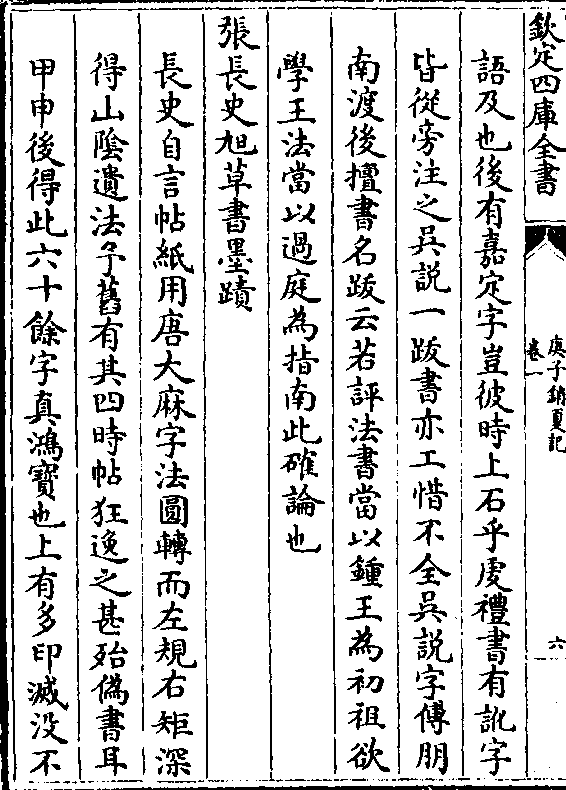 欽定四庫全書
庚子銷夏記
卷一
六
語及也後有嘉定字豈彼時上石乎䖍禮書有訛字
皆從旁注之吳說一跋書亦工惜不全吳說字傅朋
南渡後擅書名跋云若評法書當以鍾王為初祖欲
學王法當以過庭為指南此確論也
張長史旭草書墨蹟
長史自言帖紙用唐大麻字法圓轉而左規右矩深
得山陰遺法予舊有其四時帖狂逸之甚殆偽書耳
甲申後得此六十餘字真鴻寶也上有多印滅没不